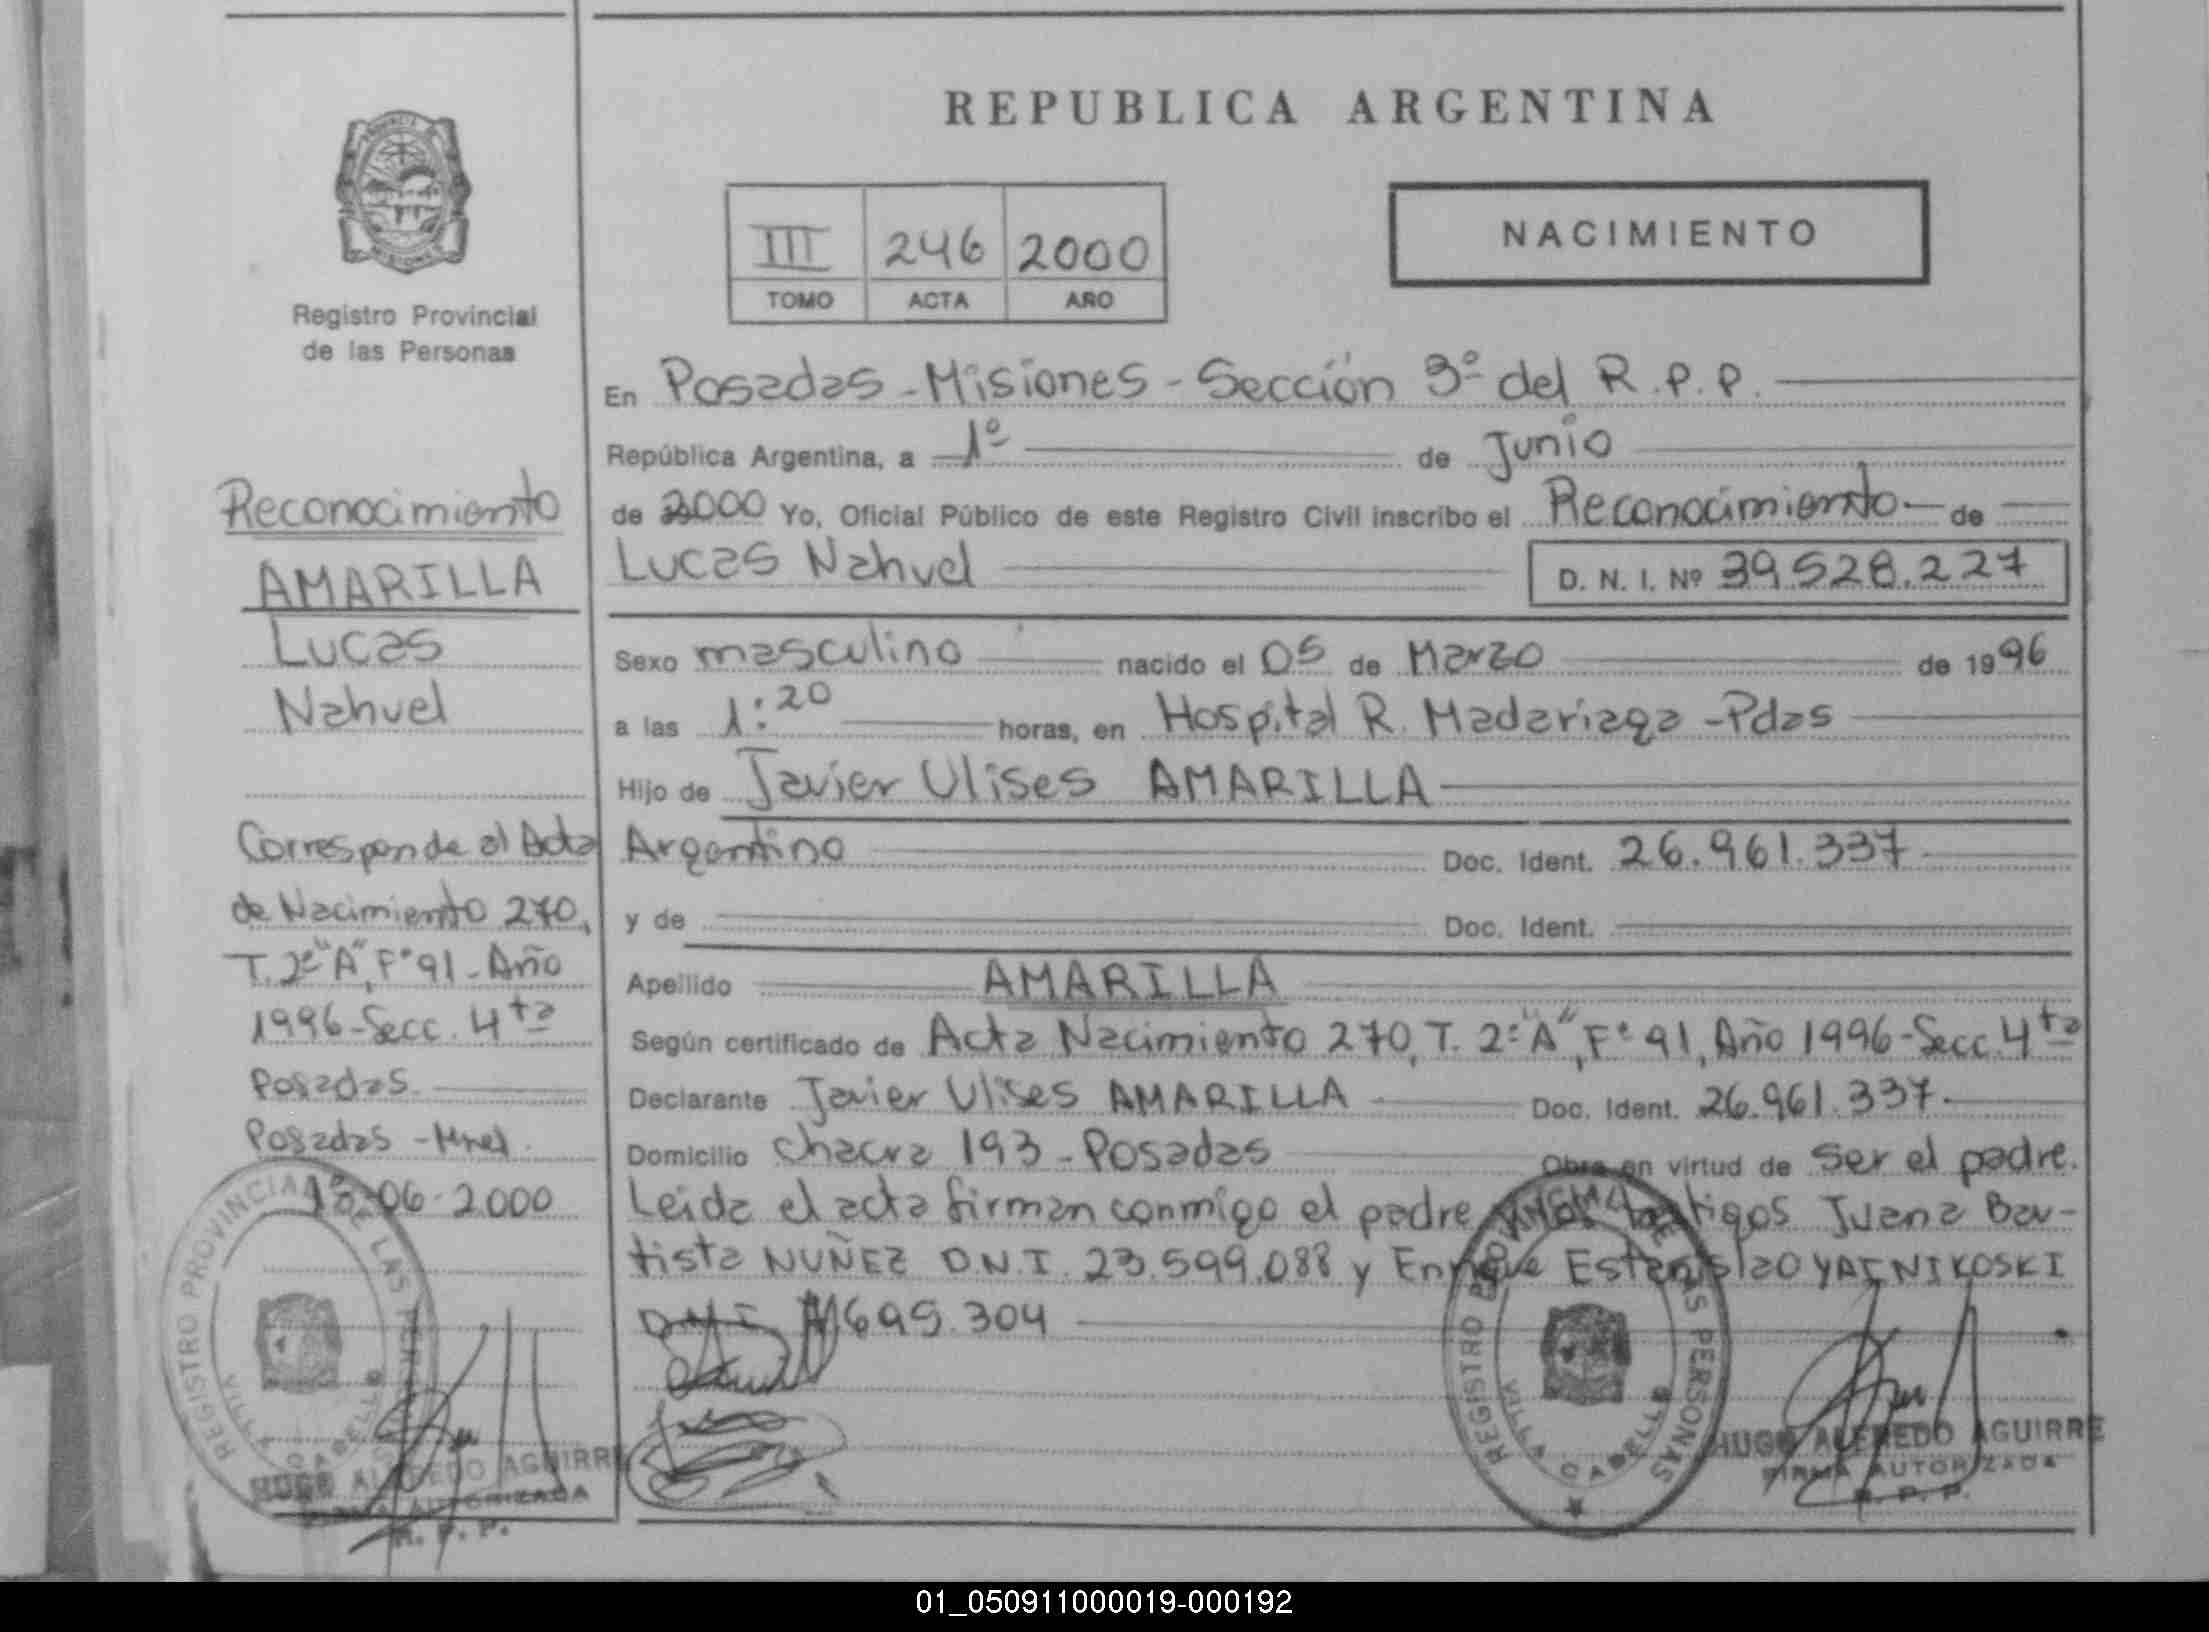 REPUBLICA ARGENTINA
III 246 2000
TOMO ACTA AÑO
NACIMIENTO
Registro Provincial
de las Personas
Reconocimiento
AMARILLA
Lucas
Nahuel
Corresponde al Acta
de Nacimiento 270,
T. 2º "A", Fº 91 - Año
1996 - Secc. 4ta
Posadas.
Posadas - Mnes.
1º-06-2000
REGISTRO PROVINCIAL DE LAS PERSONAS
VILLA CABELLO
HUGO ALFREDO AGUIRRE
FIRMA AUTORIZADA
R. P. P.
En Posadas - Misiones - Sección 3º del R. P. P.
República Argentina, a 1º de Junio
de 2000 Yo, Oficial Público de este Registro Civil inscribo el Reconocimiento de
Lucas Nahuel D. N. I. Nº 39.528.227
Sexo masculino nacido el 05 de Marzo de 1996
a las 1:20 horas, en Hospital R. Madariaga - Pdas
Hijo de Javier Ulises AMARILLA
Argentino Doc. Ident. 26.961.337
y de Doc. Ident.
Apellido AMARILLA
Según certificado de Acta Nacimiento 270, T. 2º "A", Fº 91, Año 1996 - Secc. 4ta
Declarante Javier Ulises AMARILLA Doc. Ident. 26.961.337.
Domicilio Chacra 193 - Posadas Obra en virtud de ser el padre.
Leida el acta firman conmigo el padre y los testigos Juana Bau-
tista NUÑEZ D.N.I. 23.599.088 y Enrique Estanislao YATNIKOSKI
D.N.I. 695.304
REGISTRO PROVINCIAL DE LAS PERSONAS
VILLA CABELLO
HUGO ALFREDO AGUIRRE
FIRMA AUTORIZADA
R. P. P.
01_050911000019-000192